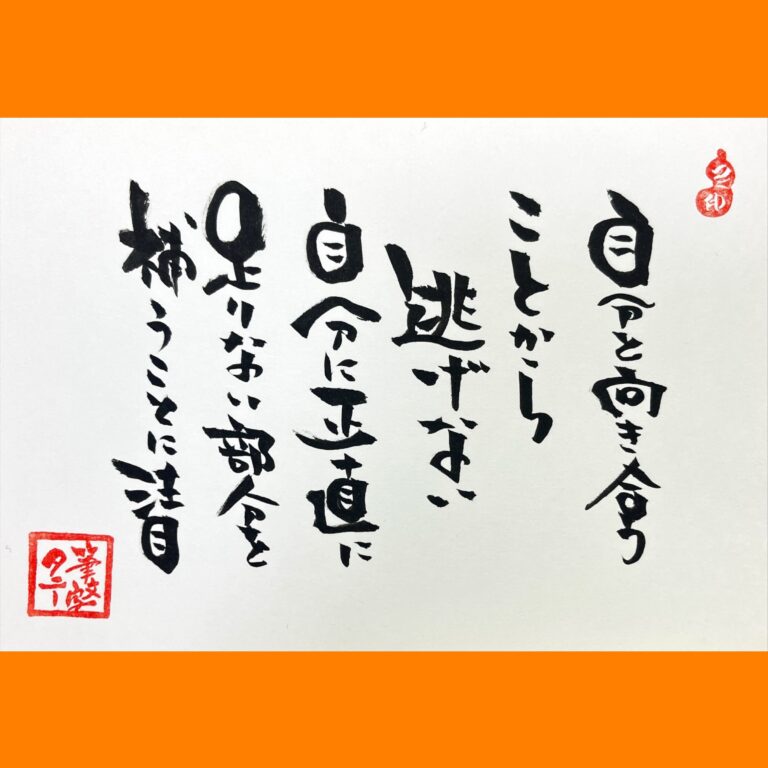 自分と向き合う
ことから
逃げない
自分に正直に
足りない部分を
補うことに注目